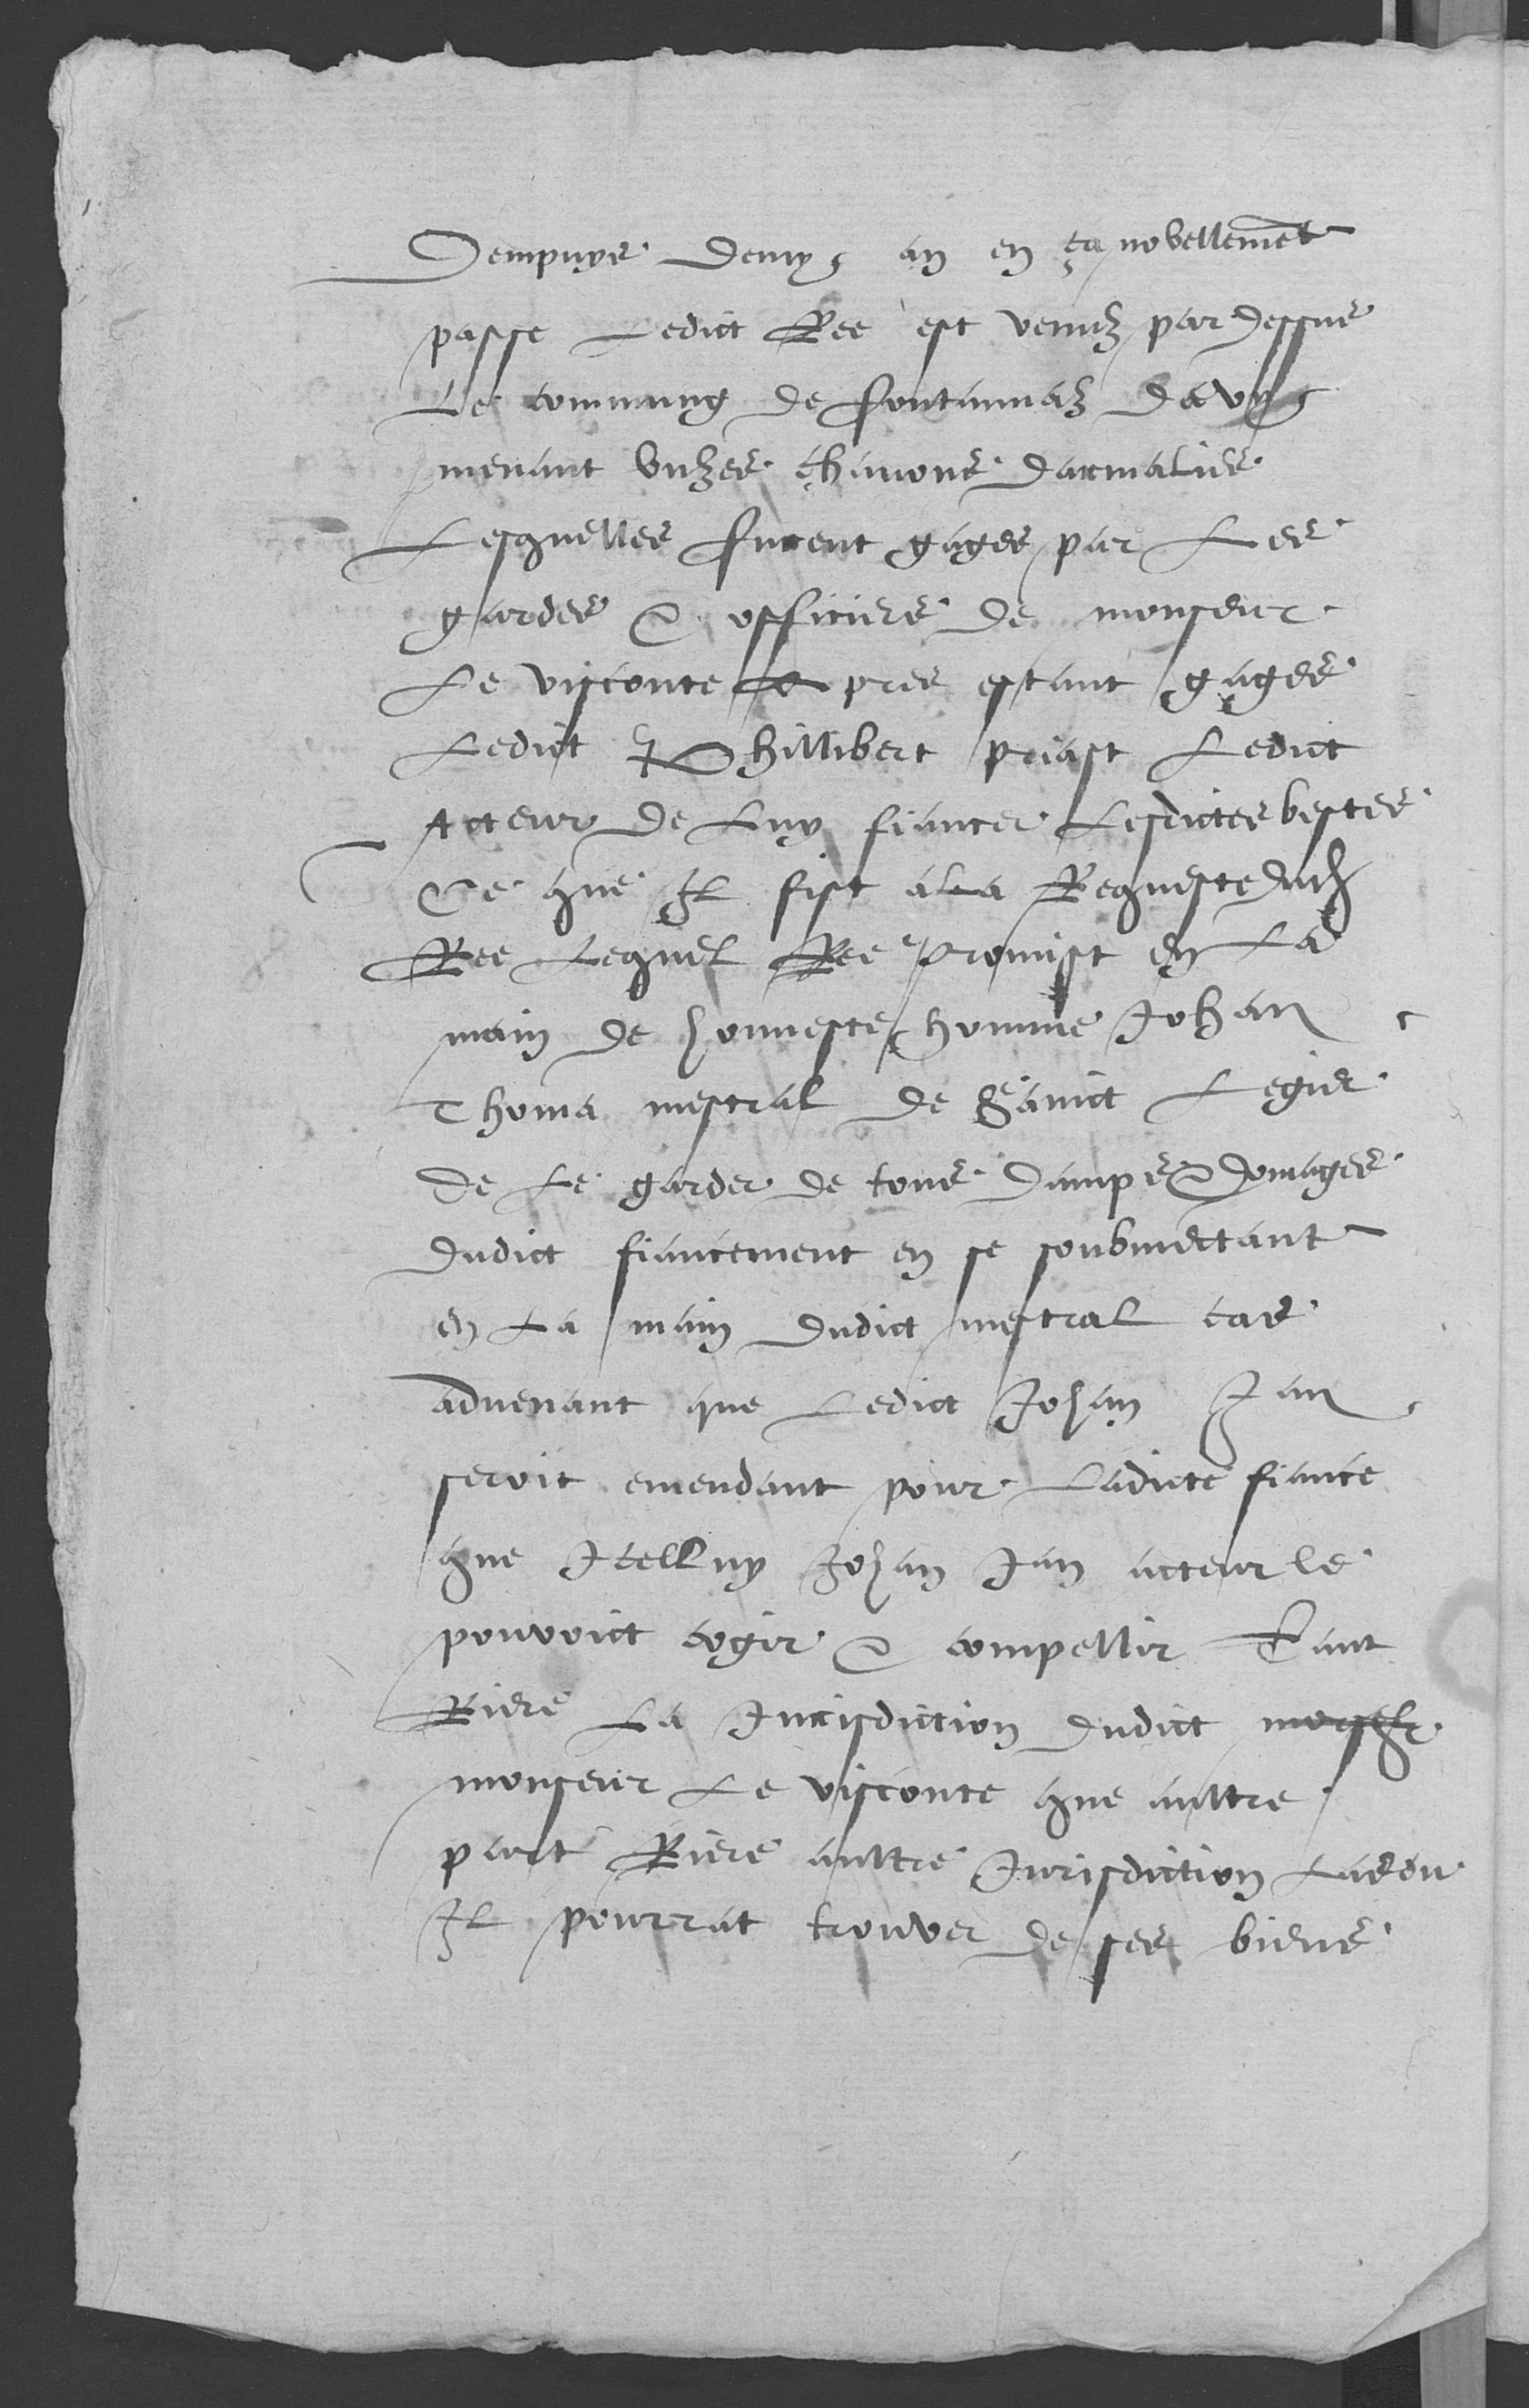 Dempuys demy an en ça novellement
passe Ledict Ree est venuz par dessus
Le commung de fontannaz Davy
menant unzes chavons darmalies
Lesquelles furent gagees par Les
gardes & officiers de monseur
Le visconte & pres estant gagees
Ledict Phillibert priast Ledict
Acteur de Luy fiancer Lesdictes bestes
Ce que Il fist a La Requeste dudit
Ree Lequel Ree promist en La
main de honneste homme Johan
Thoma mestral de Sainct Legier
de Le garder de tous damps & domages
dudict fiancement en se soubmectant
en La main dudict mestral cas
advenant que Ledict Johan Jan
seroit emendant pour Ladicte fiance
que Icelluy Johan Jan acteur le
pouvoict cogir & compellir Tant
Riere La Jurisdiction dudict
monseur Le visconte que aultre
part Riere aultre Jurisdiction Laeou
Il pourrat trouver de ses biens